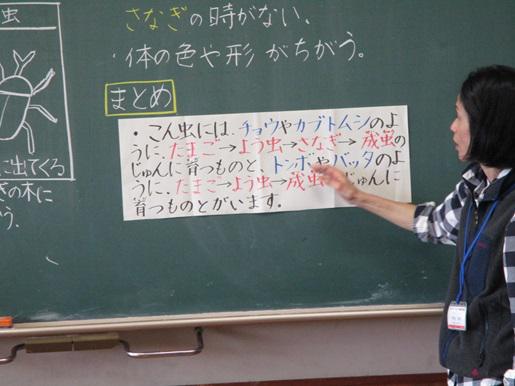 虫
に出てくる
ぎの木に
う。
さなぎの時がない、
・体の色や形がちがう。
まとめ
・こん虫には、チョウやカブトムシのよ
うに、たまご→よう虫→さなぎ→成虫の
じゅんに育つものと、トンボやバッタのよ
うに、たまご→よう虫→成虫 じゅんに
育つものとがいます。